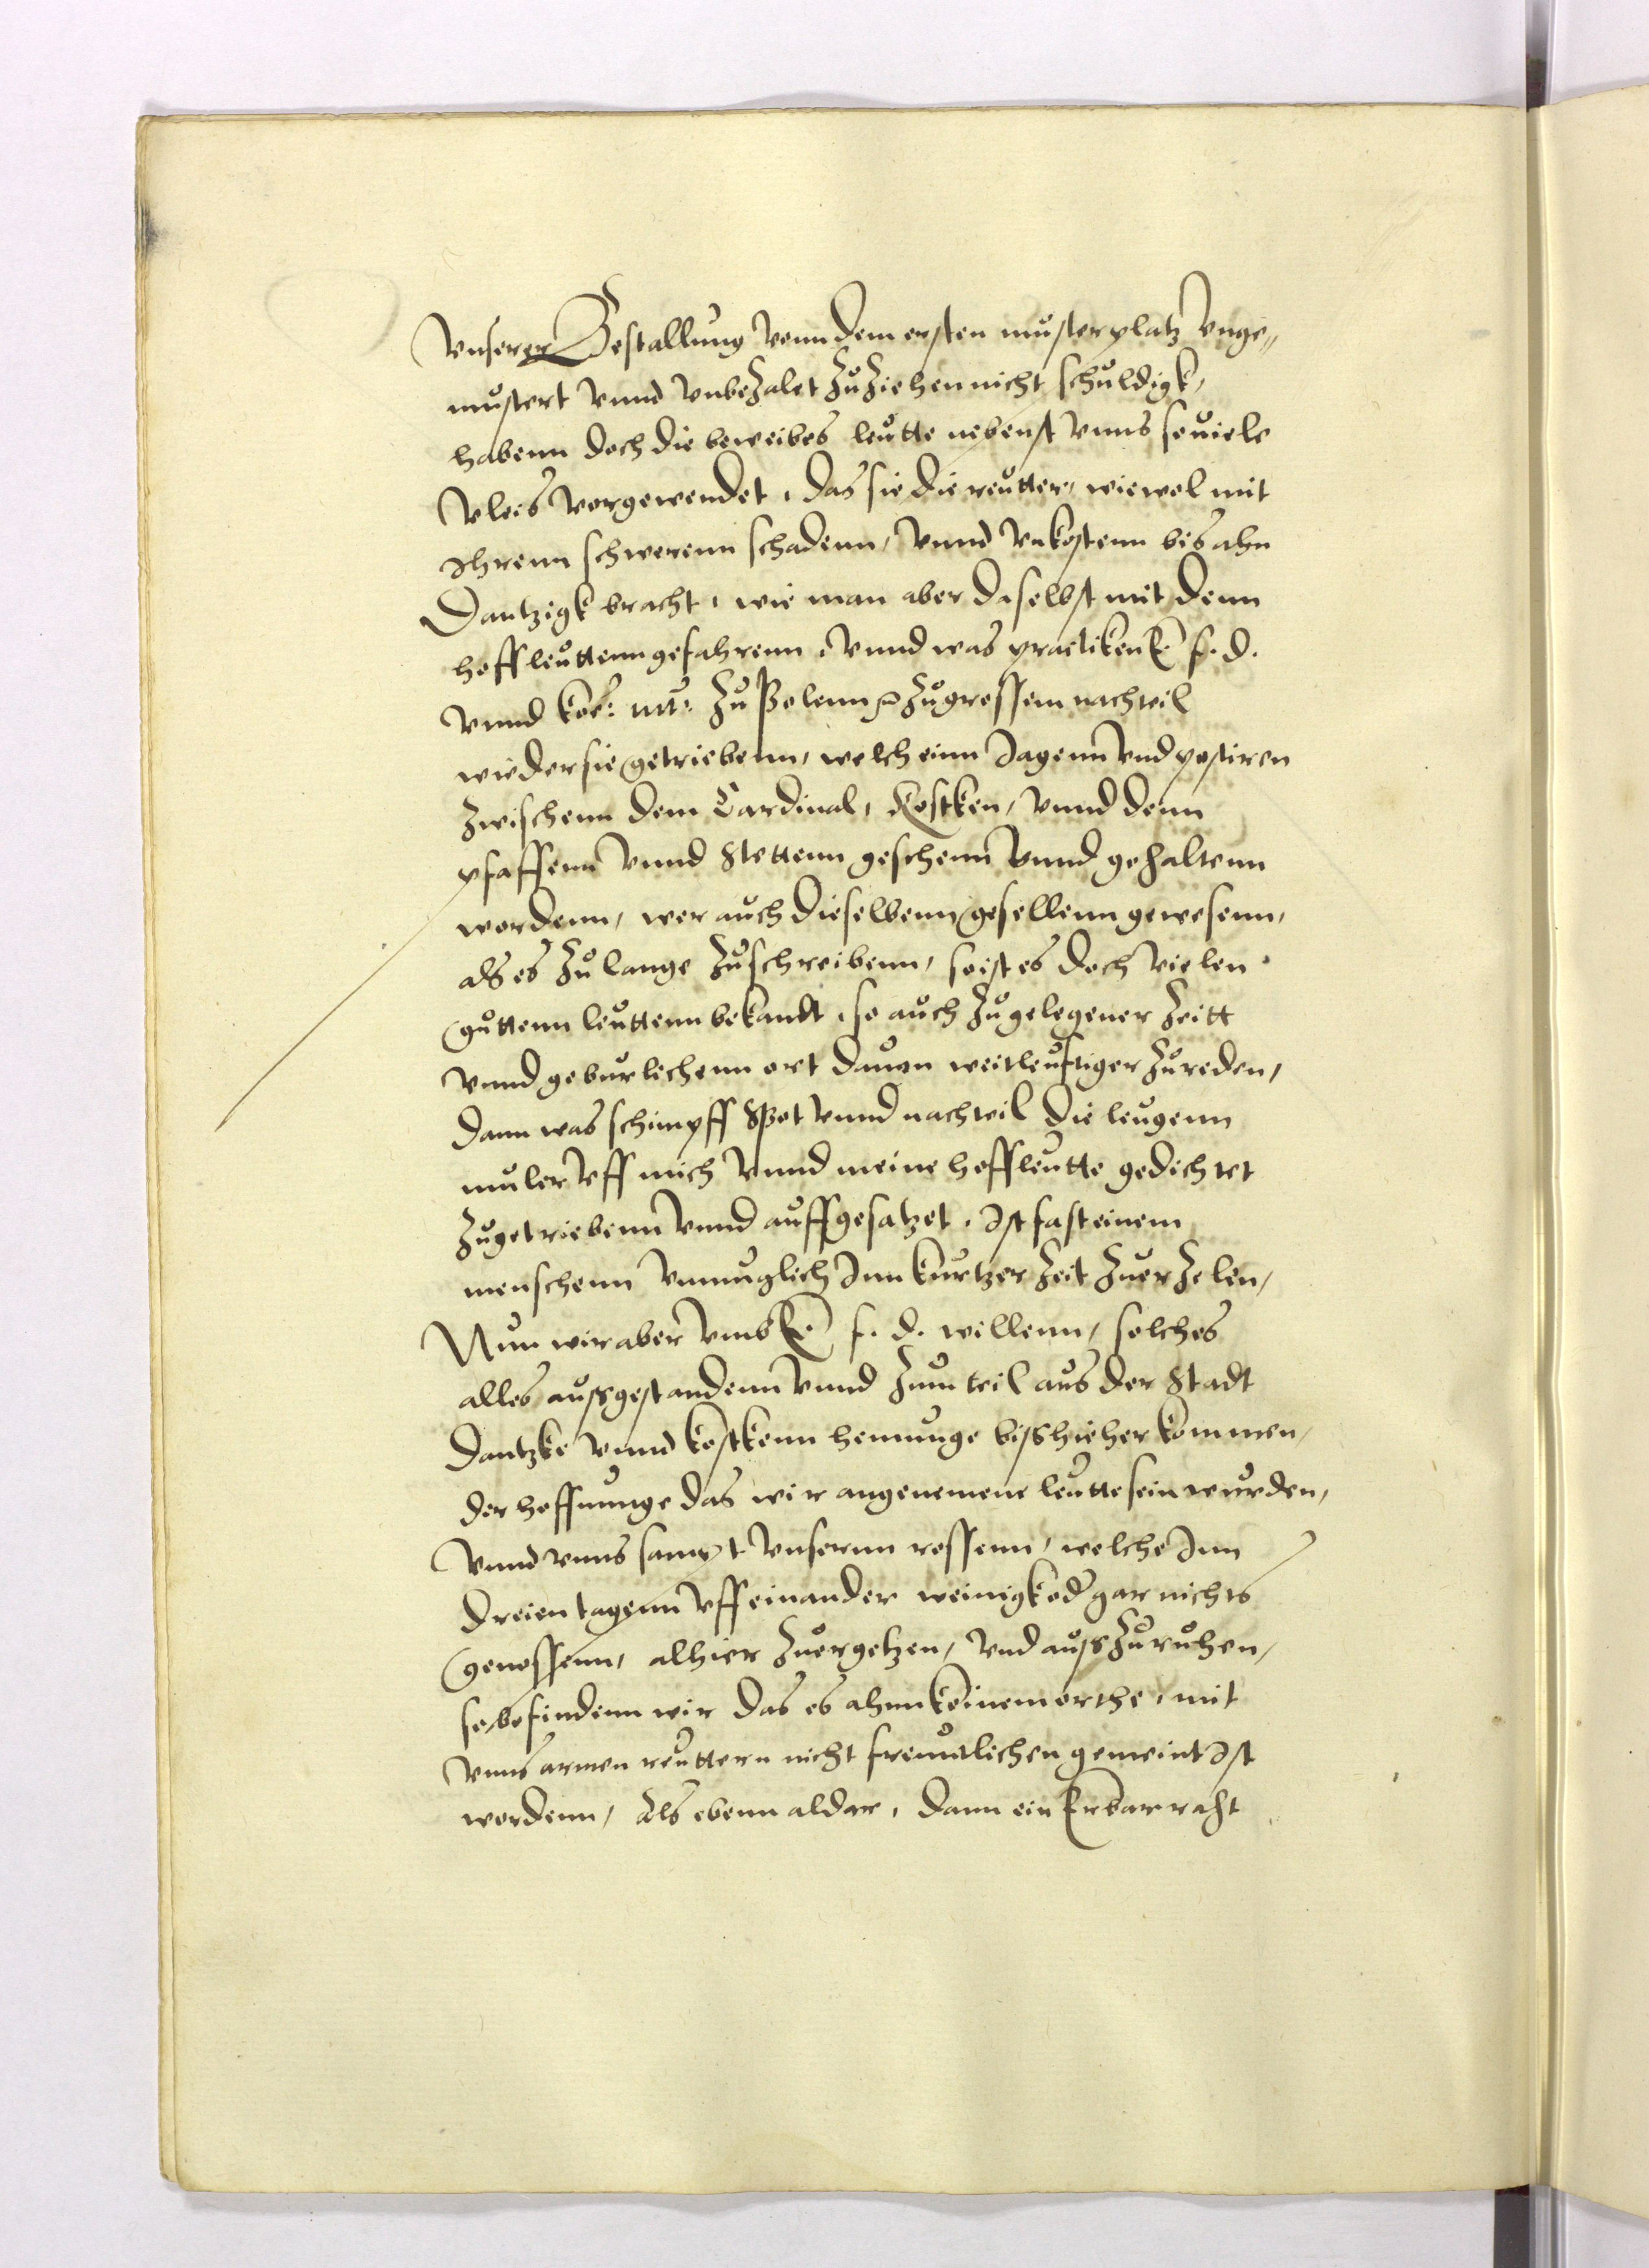 Vnserer Bestallung vonn dem ersten musterplatz vnge„
mustert vnnd vnbezalet zuziehen nicht schuldigk,
habenn doch die beweibes leutte nebenst vnns souiele
vleis vorgewendet, das sie die reutter, wiewol mit
Ihrenn schwerenn schadenn, vnnd vnkostenn bis ahn
Dantzigk bracht, wie man aber daselbst mit denn
hoffleuttenn gefahrenn, vnnd was practiken E. f. d.
vnnd koe: mt: zu Polenn zugrossem nachteil
wieder sie getriebenn, welch einn Jagenn vnd postiren
zwischenn dem Cardinal, Kostken, vnnd denn
pfaffenn vnnd Stettenn geschenn vnnd gehaltenn
wordenn, wer auch dieselbenn gesellenn gewesenn,
als es zu lange zuschreibenn, so ist es doch vielen
guttenn leuttenn bekandt, so auch zugelegener zeitt
vnnd geburlichenn ort dauon weitleuftiger zureden,
dann was schimpff Spot vnnd nachteil die leugenn
muler vff mich vnnd meine hoffleutte gedichtet
zugetriebenn vnnd auffgesatzet, Ist fast einem
menschenn vnmuglich Inn kurtzer zeit zuerzelen,
Nun wir aber vmb E. f. d. willenn, solches
alles aussgestandenn vnnd zum teil aus der Stadt
Dantzke vnnd kostkenn hemunge bisshieher kommen,
der hoffnunge das wir angenemene leutte sein wurden,
vnnd vnns sampt vnserenn rossenn, welche Inn
dreien tagenn vff einander weinigk oder gar nichts
genossenn, alhier zuergetzen, vnd ausszuruhen,
so befindenn wir das es ahnn keinem orthe, mit
vnns armen reuttern nicht freuntlichen gemeint Ist
wordenn, Als ebenn aldar, dann ein Erbar raht